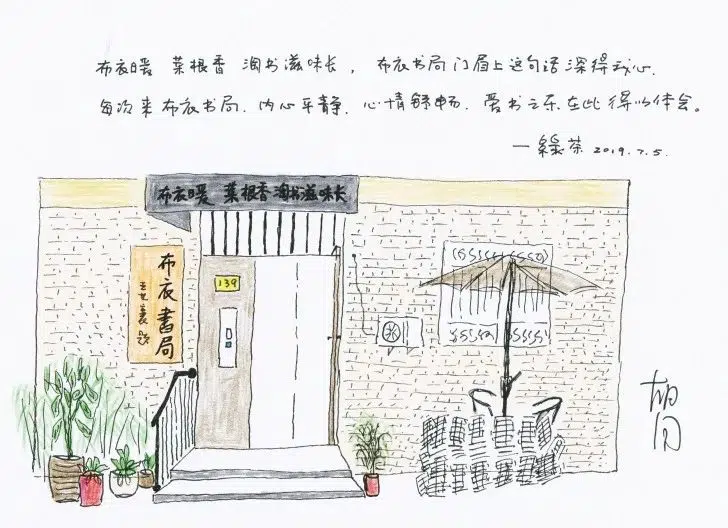 布衣暖 菜根香 淘书滋味长，布衣书局门眉上这句话深得我心.
每次来布衣书局.内心平静.心情舒畅.爱书之乐在此得以体会。
一綠茶 2019.7.5.
布衣暖 菜根香 淘书滋味长
布衣書局
王世襄 题
139
胡同